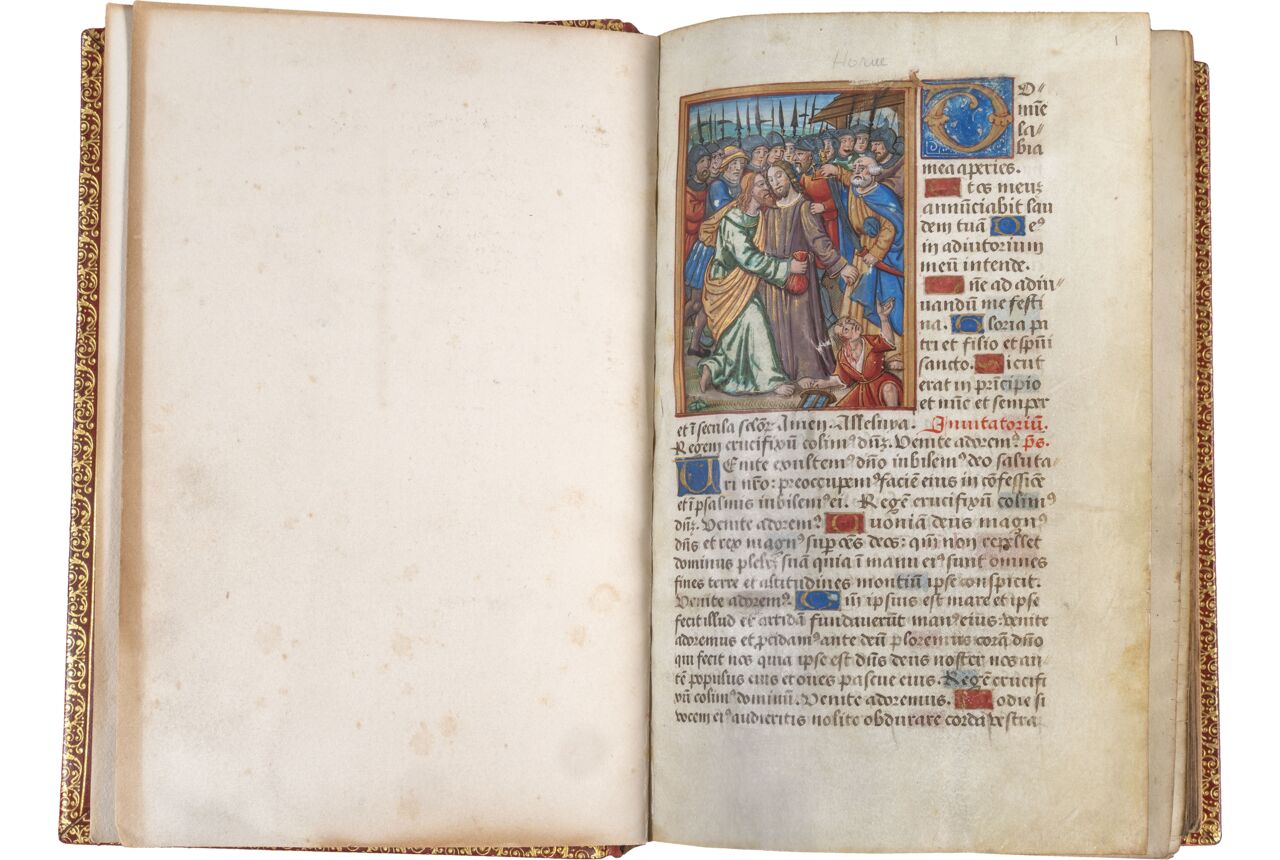 Horae
1
D"
mīe
la"
bia
mea aperies.
Et os meuʒ
annūciabit lau
dem tuā Deꝰ
in adiutorium
meū intende.
Dñe ad adiu"
uandū me festi
na. Gloria pa
tri et filio et spūi
sancto. Sicut
erat in prīcipio
et nūc et semper
et ī secula sclōr Amen. Alleluya. Inuitatoriū.
Regem crucifixū colimꝰ dūʒ. Venite adoremꝰ. p̄s.
VEnite exultemꝰ dn̄o iubilemꝰ deo saluta-
ri nr̄o: preoccupemꝰ faciē eius in cōfessiōe
et ī psalmis iubilemꝰ ei. Regē crucifixū colimꝰ
dūʒ. Venite adoremꝰ. Quoniā deus magnꝰ
dn̄s et rex magnꝰ sup oēs deos: qm̄ non repellet
dominus plebeʒ suā quia ī manu eiꝰ sunt omnes
fines terre et altitudines montiū ipse conspicit.
Venite adoremꝰ. Qm̄ ipsius est mare et ipse
fecit illud et aridā fundauerūt manꝰ eius: venite
adoremus et pcidamꝰ ante deū ploremus corā dn̄o
qui fecit nos quia ipse est dn̄s deus noster nos au-
tē populus eius et oues pascue eius. Regē crucifi
xū colimꝰ dominū. Venite adoremus. Hodie si
vocem eiꝰ audieritis nolite obdurare corda vestra